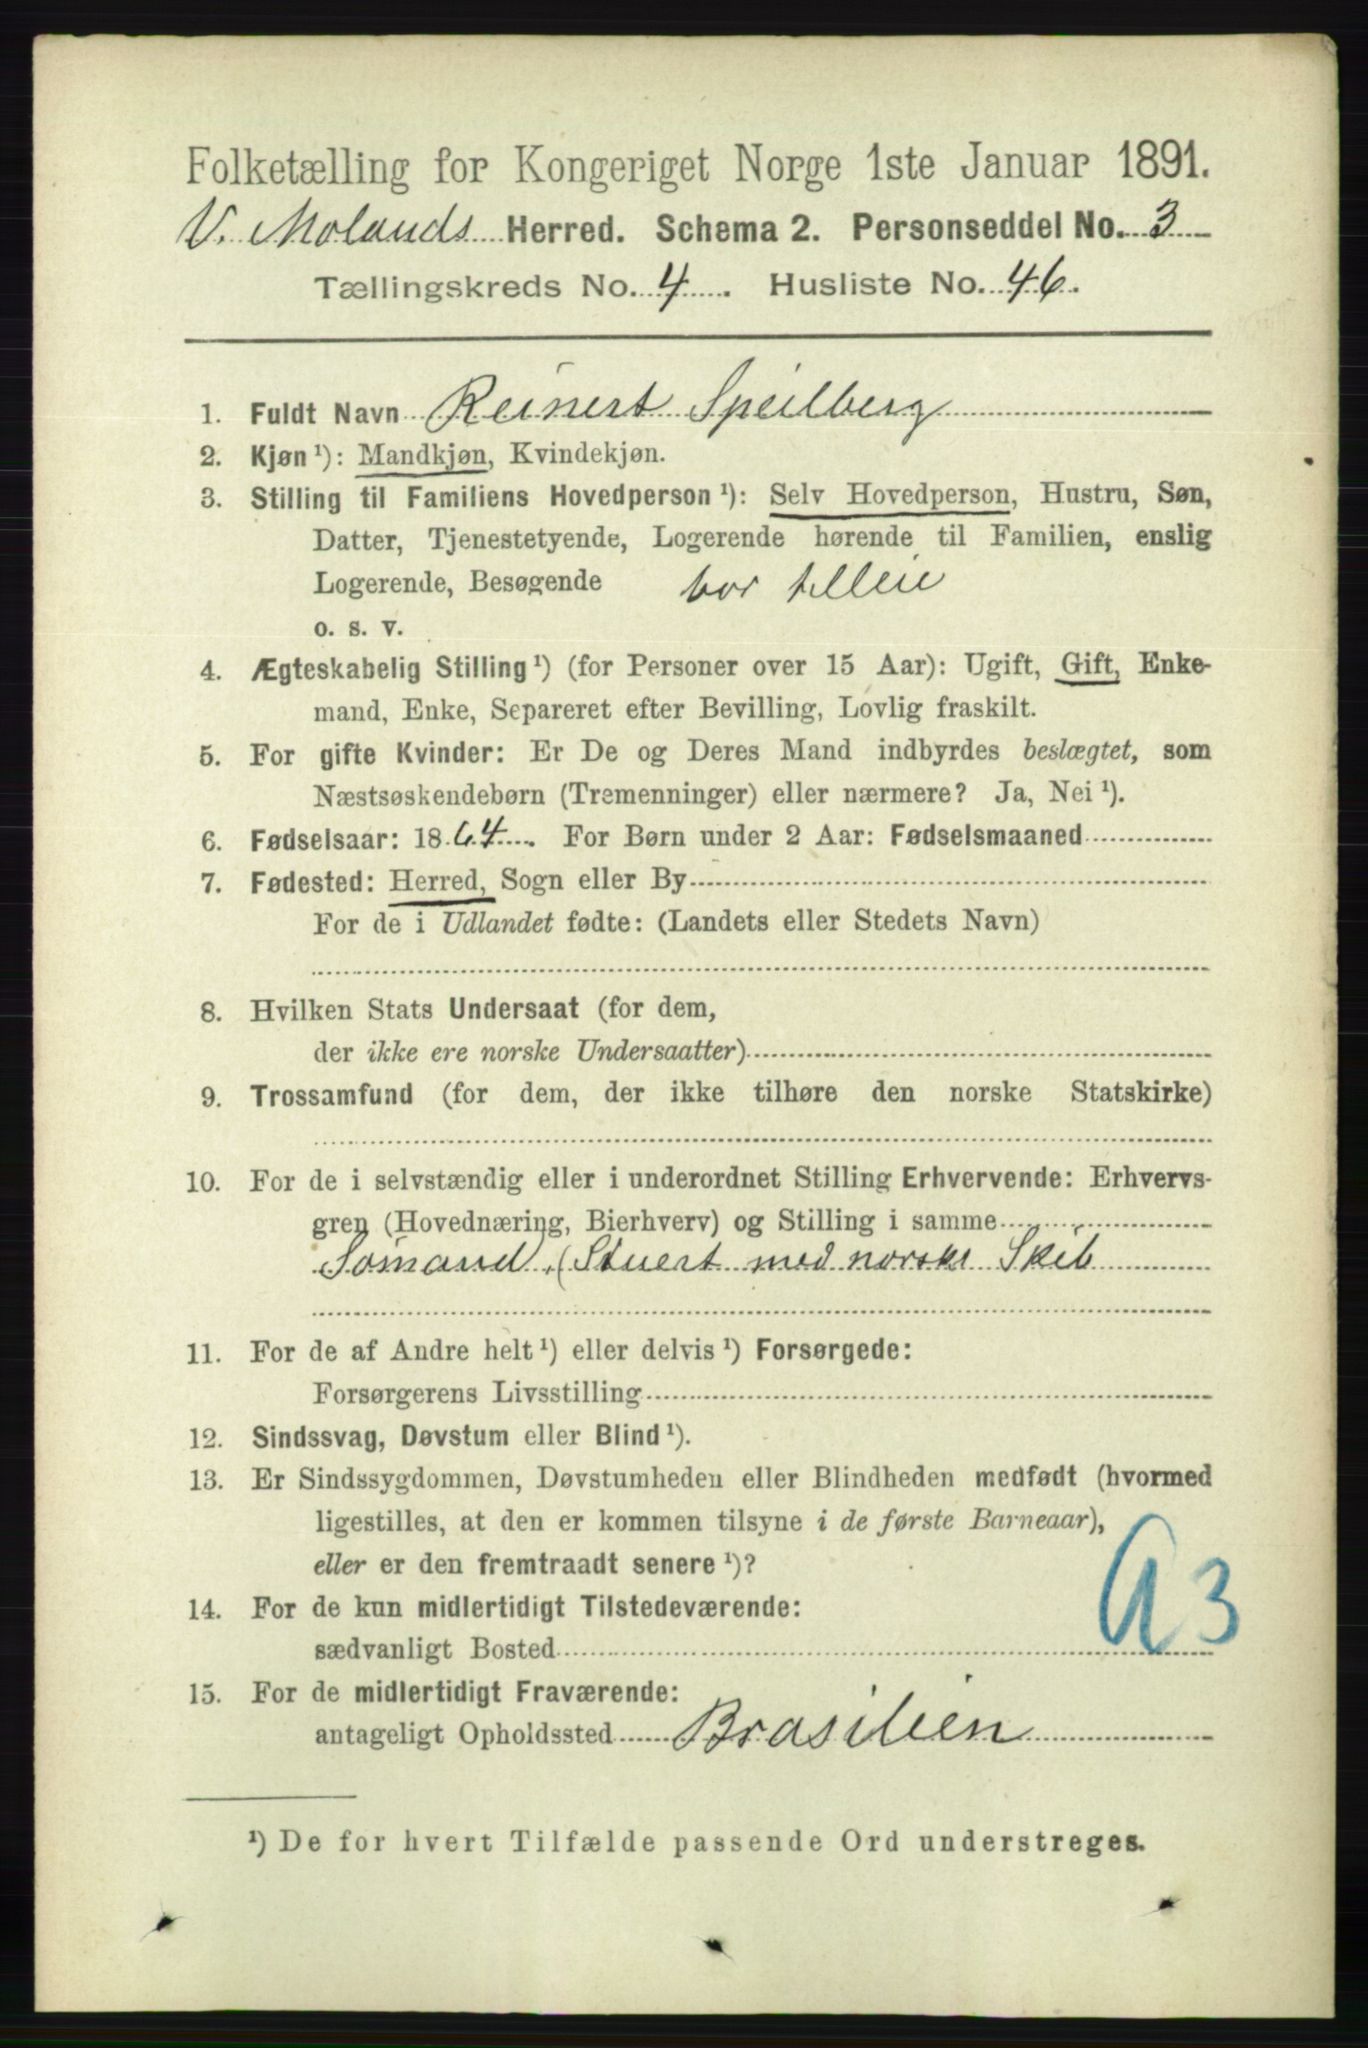 Folketælling for Kongeriget Norge 1ste Januar 1891.
V. Molands Herred. Schema 2. Personseddel No. 3
Tællingskreds No. 4. Husliste No. 46.
1. Fuldt Navn Reinert Speilberg
2. Kjøn ¹): Mandkjøn, Kvindekjøn.
3. Stilling til Familiens Hovedperson ¹): Selv Hovedperson, Hustru, Søn,
Datter, Tjenestetyende, Logerende hørende til Familien, enslig
Logerende, Besøgende bor tilleie
o. s. v.
4. Ægteskabelig Stilling ¹) (for Personer over 15 Aar): Ugift, Gift, Enke-
mand, Enke, Separeret efter Bevilling, Lovlig fraskilt.
5. For gifte Kvinder: Er De og Deres Mand indbyrdes beslægtet, som
Næstsøskendebørn (Tremenninger) eller nærmere? Ja, Nei ¹).
6. Fødselsaar: 1864. For Børn under 2 Aar: Fødselsmaaned
7. Fødested: Herred, Sogn eller By
For de i Udlandet fødte: (Landets eller Stedets Navn)
8. Hvilken Stats Undersaat (for dem,
der ikke ere norske Undersaatter)
9. Trossamfund (for dem, der ikke tilhøre den norske Statskirke)
10. For de i selvstændig eller i underordnet Stilling Erhvervende: Erhvervs-
gren (Hovednæring, Bierhverv) og Stilling i samme
Sømand. (Stuert med norske Skib
11. For de af Andre helt ¹) eller delvis ¹) Forsørgede:
Forsørgerens Livsstilling
12. Sindssvag, Døvstum eller Blind ¹).
13. Er Sindssygdommen, Døvstumheden eller Blindheden medfødt (hvormed
ligestilles, at den er kommen tilsyne i de første Barneaar),
eller er den fremtraadt senere ¹)?
14. For de kun midlertidigt Tilstedeværende:
sædvanligt Bosted
A3
15. For de midlertidigt Fraværende:
antageligt Opholdssted Brasilien
¹) De for hvert Tilfælde passende Ord understreges.